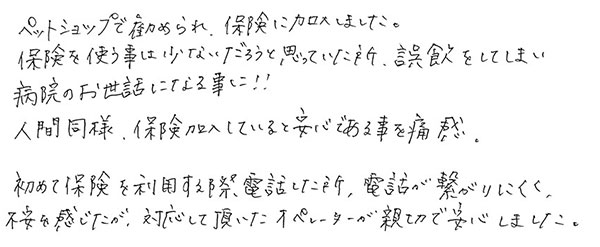 ペットショップで勧められ、保険に加入しました。
保険を使う事は少ないだろうと思っていた所、誤飲をしてしまい
病院のお世話になる事に!!
人間同様、保険加入していると安心である事を痛感。
初めて保険を利用する際、電話した所、電話が繋がりにくく、
不安を感じたが、対応して頂いたオペレーターが親切で安心しました。